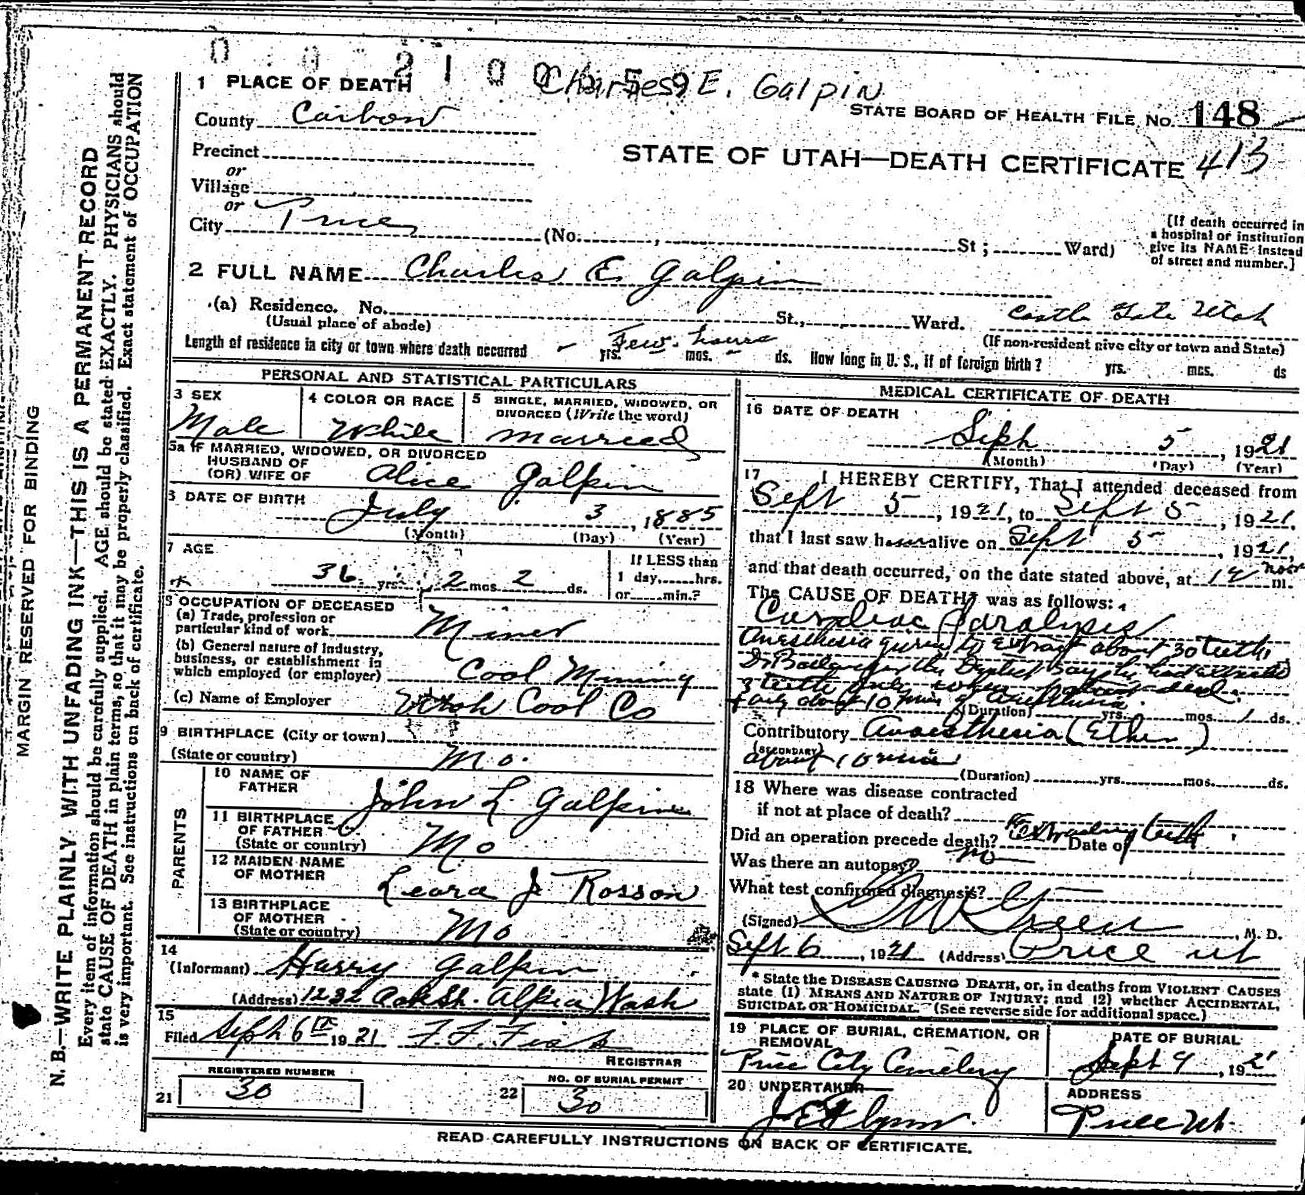 0 0 2 1 0 0
Charles E. Galpin
1 PLACE OF DEATH
STATE BOARD OF HEALTH FILE NO. 148
County Carbon
413
Precinct
STATE OF UTAH—DEATH CERTIFICATE
or
Village
or
City Price (No. , St ; Ward)
[If death occurred in
a hospital or institution
give its NAME instead
of street and number.]
2 FULL NAME Charles E Galpin
(a) Residence. No. St., Ward. Castle Gate Utah
(Usual place of abode) (If non-resident give city or town and State)
Length of residence in city or town where death occurred yrs. Few hours mos. ds. How long in U. S., if of foreign birth? yrs. mos. ds
PERSONAL AND STATISTICAL PARTICULARS
3 SEX
Male
4 COLOR OR RACE
White
5 SINGLE, MARRIED, WIDOWED, OR
DIVORCED (Write the word)
Married
5a IF MARRIED, WIDOWED, OR DIVORCED
HUSBAND OF
(OR) WIFE OF Alice Galpin
6 DATE OF BIRTH
July 3, 1885
(Month) (Day) (Year)
7 AGE
36 yrs. 2 mos. 2 ds.
If LESS than
1 day, hrs.
or min.?
8 OCCUPATION OF DECEASED
(a) Trade, profession or
particular kind of work Miner
(b) General nature of industry,
business, or establishment in
which employed (or employer) Coal Mining
(c) Name of Employer Utah Coal Co
9 BIRTHPLACE (City or town)
(State or country) Mo.
PARENTS
10 NAME OF
FATHER John L Galpin
11 BIRTHPLACE
OF FATHER
(State or country) Mo
12 MAIDEN NAME
OF MOTHER Leora J Rosson
13 BIRTHPLACE
OF MOTHER
(State or country) Mo
14
(Informant) Harry Galpin
(Address) 1232 Oak St. Wash
15
Filed Sept 6th 1921
REGISTRAR
REGISTERED NUMBER
21 30
NO. OF BURIAL PERMIT
22 30
MEDICAL CERTIFICATE OF DEATH
16 DATE OF DEATH
Sept 5, 1921
(Month) (Day) (Year)
17 I HEREBY CERTIFY, That I attended deceased from
Sept 5, 1921, to Sept 5, 1921,
that I last saw h alive on Sept 5, 1921,
and that death occurred, on the date stated above, at 12 noon m.
The CAUSE OF DEATH* was as follows:
Cardiac Paralysis
Anesthesia given to extract about 30 teeth
the Dentist say he had extracted
3 teeth only when patient died.
only about 10 min of anesthesia.
(Duration) yrs. mos. 1 ds.
Contributory Anaesthesia (Ether)
(SECONDARY)
about 10 min
(Duration) yrs. mos. ds.
18 Where was disease contracted
if not at place of death?
Did an operation precede death? Extracting teeth Date of
Was there an autopsy? no
What test confirmed diagnosis?
(Signed) Green, M. D.
Sept 6, 1921 (Address) Price Ut
* State the DISEASE CAUSING DEATH, or, in deaths from VIOLENT CAUSES
state (1) MEANS AND NATURE OF INJURY; and (2) whether ACCIDENTAL,
SUICIDAL OR HOMICIDAL. (See reverse side for additional space.)
19 PLACE OF BURIAL, CREMATION, OR
REMOVAL
Price City Cemetery
DATE OF BURIAL
Sept 9, 192
20 UNDERTAKER
J E Flynn
ADDRESS
Price Ut.
READ CAREFULLY INSTRUCTIONS ON BACK OF CERTIFICATE.
MARGIN RESERVED FOR BINDING
N. B.—WRITE PLAINLY WITH UNFADING INK—THIS IS A PERMANENT RECORD
Every item of information should be carefully supplied. AGE should be stated EXACTLY. PHYSICIANS should
state CAUSE OF DEATH in plain terms, so that it may be properly classified. Exact statement of OCCUPATION
is very important. See instructions on back of certificate.